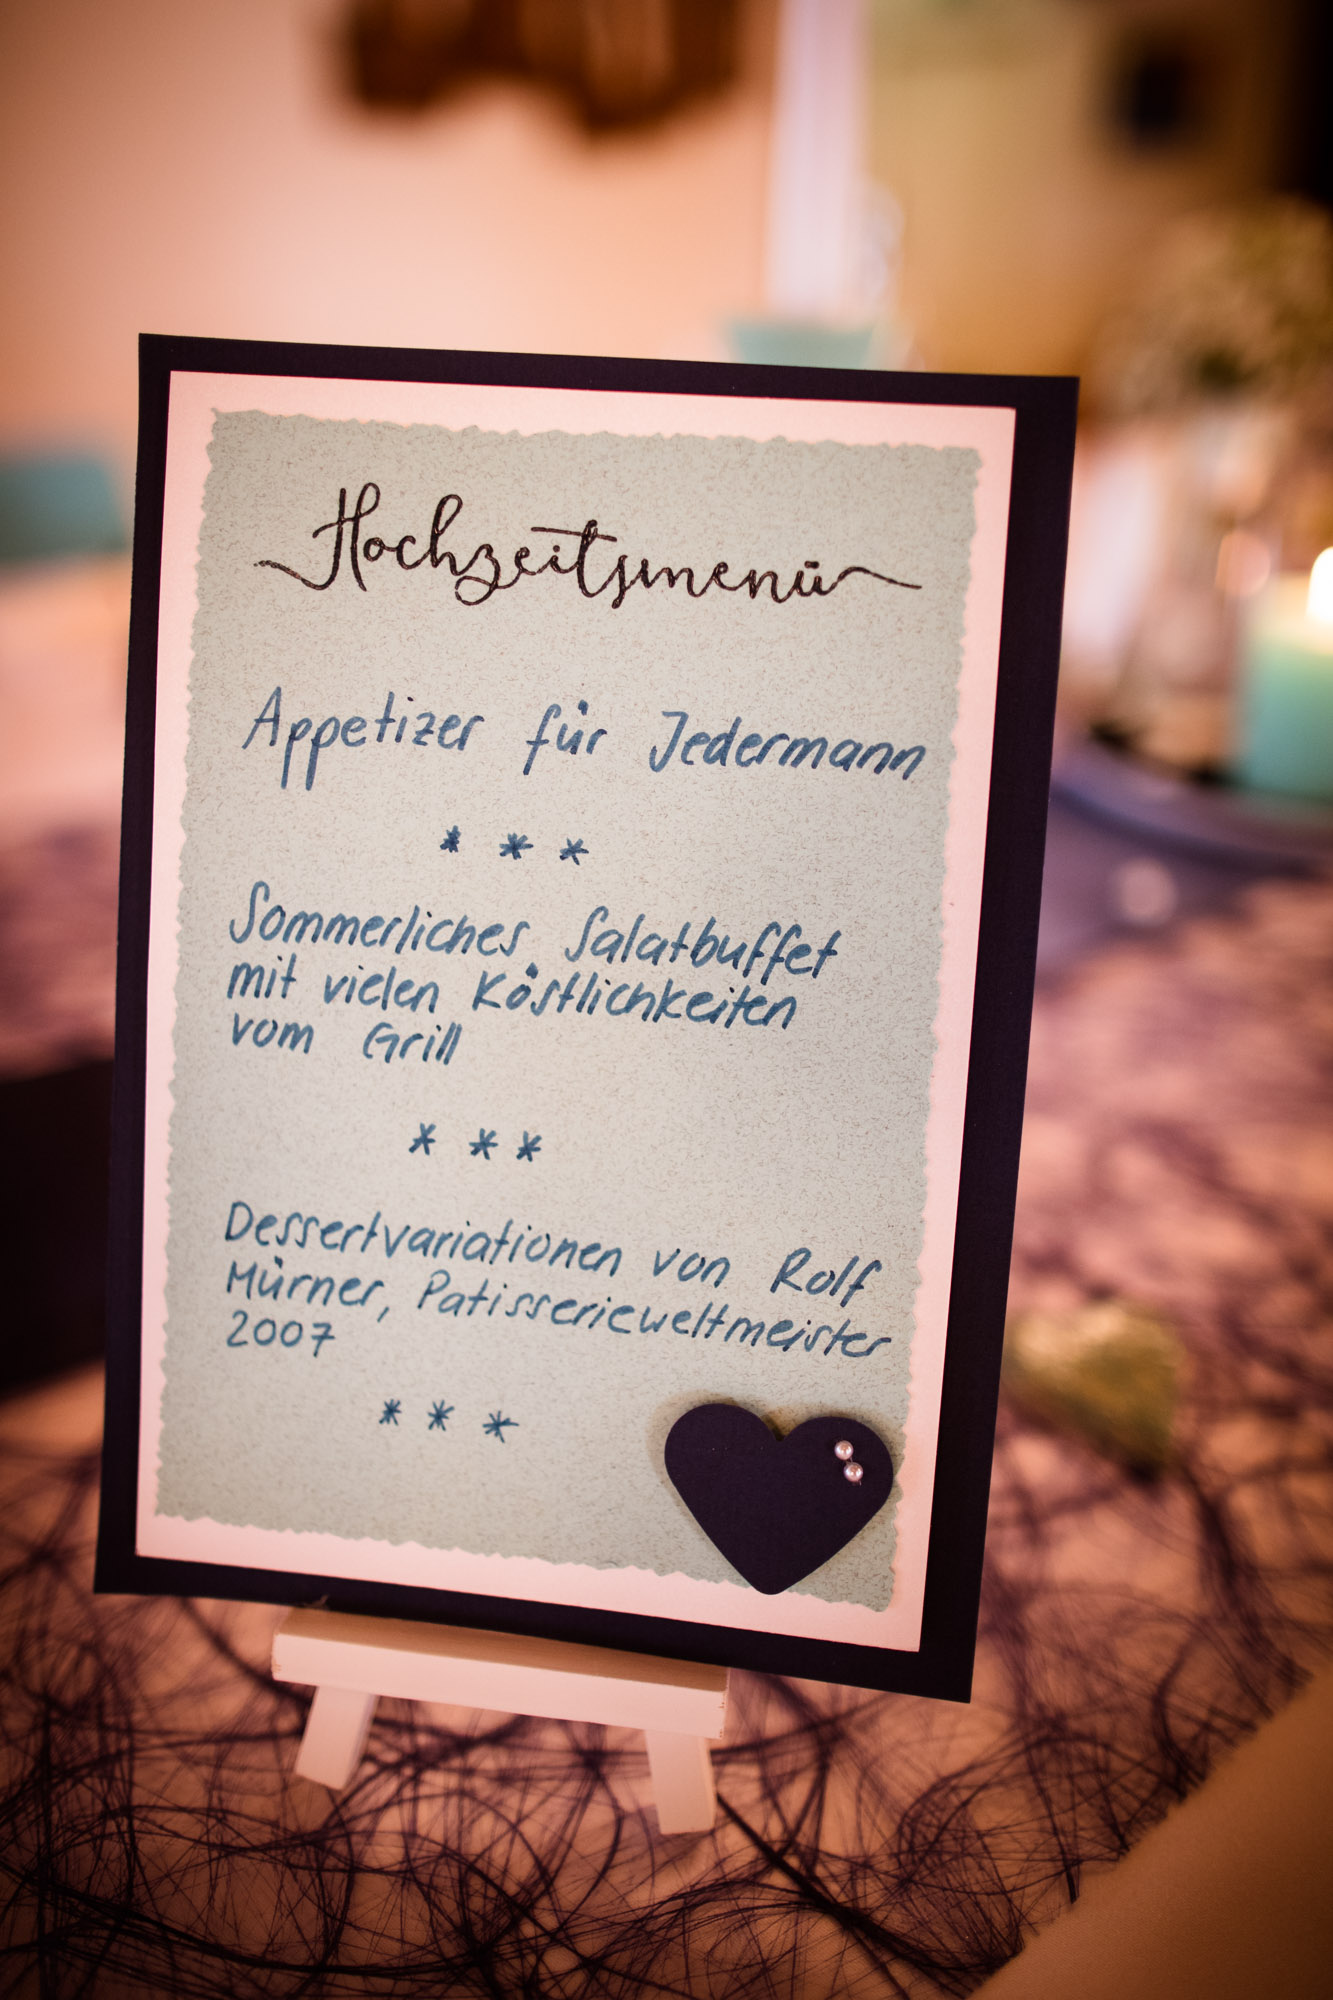 Hochzeitsmenü
Appetizer für Jedermann
* * *
Sommerliches Salatbuffet
mit vielen Köstlichkeiten
vom Grill
* * *
Dessertvariationen von Rolf
Mürner, Patisserieweltmeister
2007
* * *